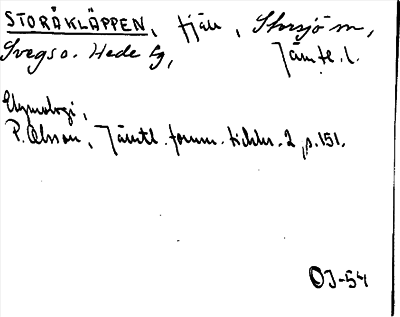 STORÅKLÄPPEN, fjäll, Storsjö sn,
Svegs o. Hede tg, Jämtl. l.
Etymologi,
P. Olsson, Jämtl. fornm. tidskr. 2, s. 151.
OJ-54